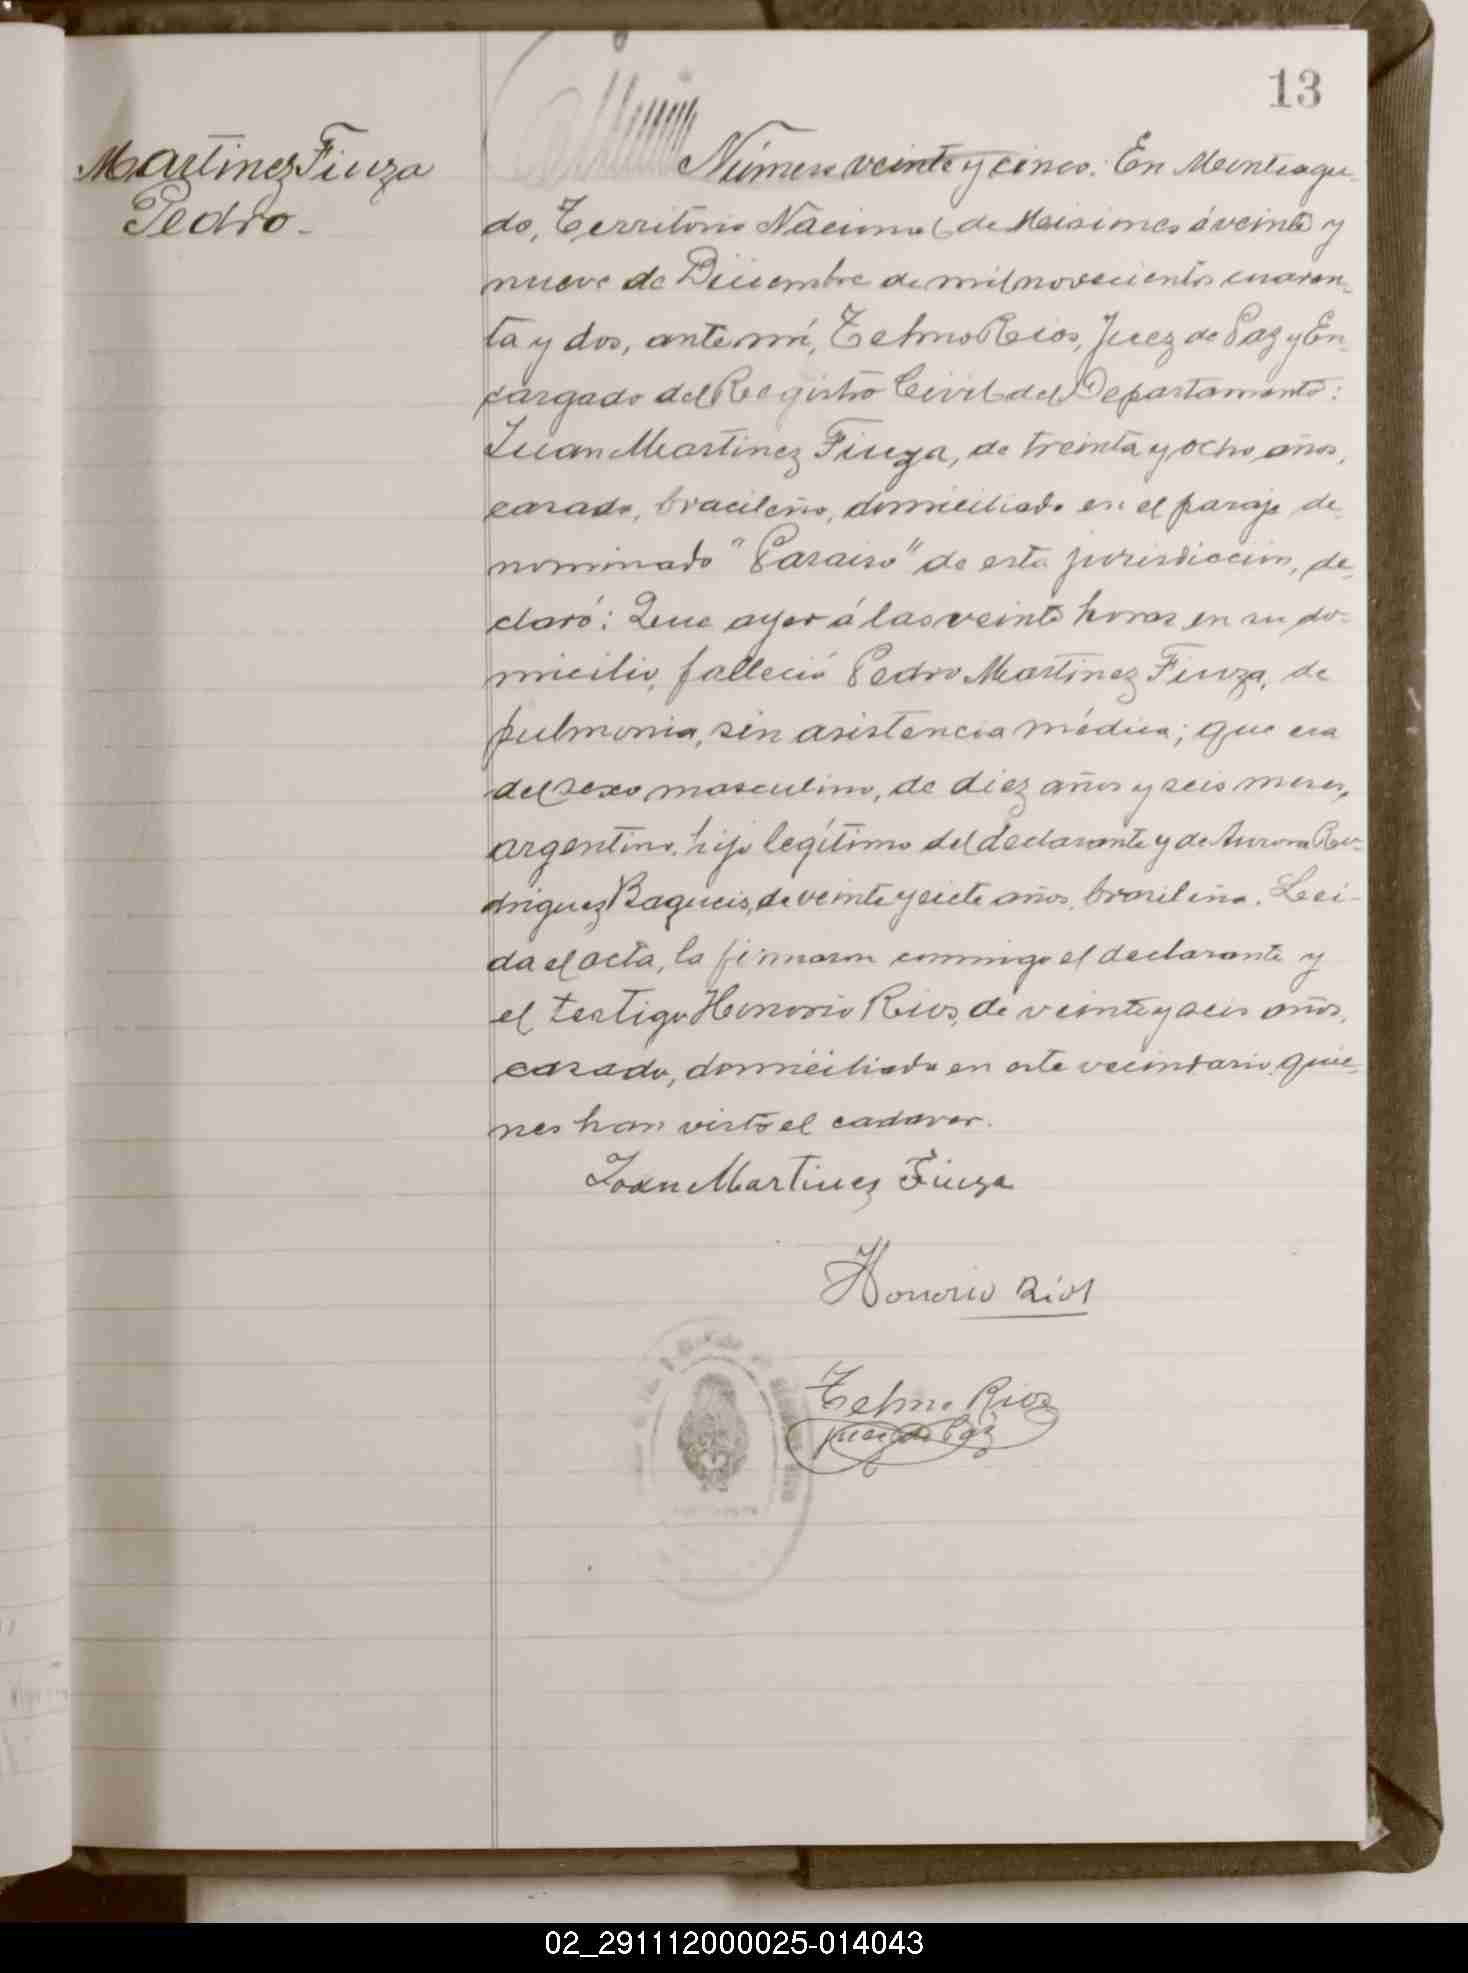 13
Martinez Fiuza
Pedro.
Número veinte y cinco: En Monteagu-
do, Territorio Nacional de Misiones á veinte y
nueve de Diciembre de mil novecientos cuaren-
ta y dos, ante mí, Telmo Rios, Juez de Paz y En-
cargado del Registro Civil del Departamento:
Juan Martinez Fiuza, de treinta y ocho años,
casado, brasileño, domiciliado en el paraje de-
nominado "Paraiso" de esta jurisdiccion, de-
claró: Que ayer á las veinte horas en su do-
micilio, falleció Pedro Martinez Fiuza, de
pulmonia, sin asistencia médica; que era
del sexo masculino, de diez años y seis meses,
argentino, hijo legítimo del declarante y de Aurora Ro-
driguez Bagueis, de veinte y siete años, brasileña. Lei-
da el acta, la firmaron conmigo el declarante y
el testigo Honorio Rios, de veinte y seis años,
casado, domiciliado en este vecindario, quie-
nes han visto el cadaver.
Joan Martinez Fiuza
Honorio Ríos
Telmo Rios
Juez de Paz
02_291112000025-014043